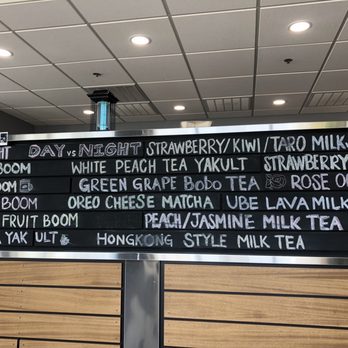 HT DAY vs NIGHT STRAWBERRY/KIWI/TARO MILK
BOOM WHITE PEACH TEA YAKULT STRAWBERRY
BOOM GREEN GRAPE BoBo TEA ROSE O
BOOM OREO CHEESE MATCHA UBE LAVA MILK
FRUIT BOOM PEACH/JASMINE MILK TEA
YAKULT HONGKONG STYLE MILK TEA